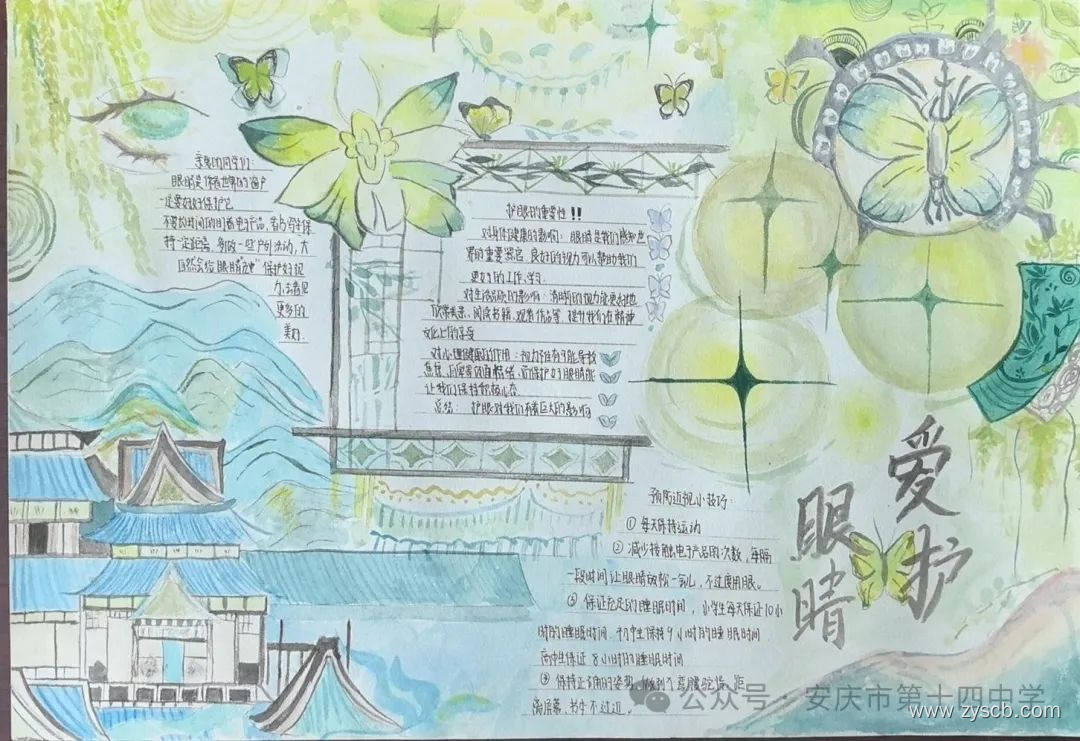 亲爱的同学们:
眼睛是你看世界的窗户
一定要好好保护它
不要长时间的盯着电子产品,看书写字保
持一定距离,多做一些户外活动,大
自然会给眼睛"充电"保护好视
力,去看见
更多的
美好.
护眼的重要性!!
对身体健康的影响:眼睛是我们感知世
界的重要器官,良好的视力可以帮助我们
更好的工作,学习.
对生活品质的影响:清晰的视力能更好地
欣赏美景,阅读书籍,观看作品等,提升我们在精神
文化上的享受
对心理健康的作用:视力不佳有可能导致
焦虑、自卑等负面情绪,而保护好眼睛能
让我们保持积极心态.
总结:护眼对我们有着巨大的影响
爱护
眼睛
预防近视小技巧:
① 每天保持运动
② 减少接触电子产品的次数,每隔
一段时间让眼睛放松一会儿,不过度用眼。
③ 保证充足的睡眠时间,小学生每天保证10小
时的睡眠时间,初中生保持9小时的睡眠时间
高中生保证8小时的睡眠时间
④ 保持正确的姿势,做到不弯腰驼背,距
离屏幕、书本不过近。
公众号·安庆市第十四中学
www.zyscb.com